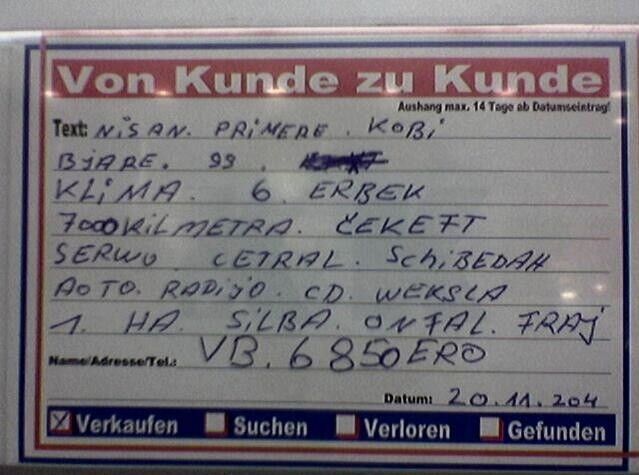 Von Kunde zu Kunde
Aushang max. 14 Tage ab Datumseintrag!
Text: NiSAN. PRiMERE. KOBi
BJARE. 99.
KLiMA. 6 ERBEK
7000KiLMETRA. ČEKEFT
SERWO CETRAL. SCHiBEDAH
AOTO. RADIJO. CD. WEKSLA
1. HA. SiLBA. ONFAL. FRAJ
Name/Adresse/Tel.: VB. 6850ERO
Datum: 20.11.204
Verkaufen Suchen Verloren Gefunden